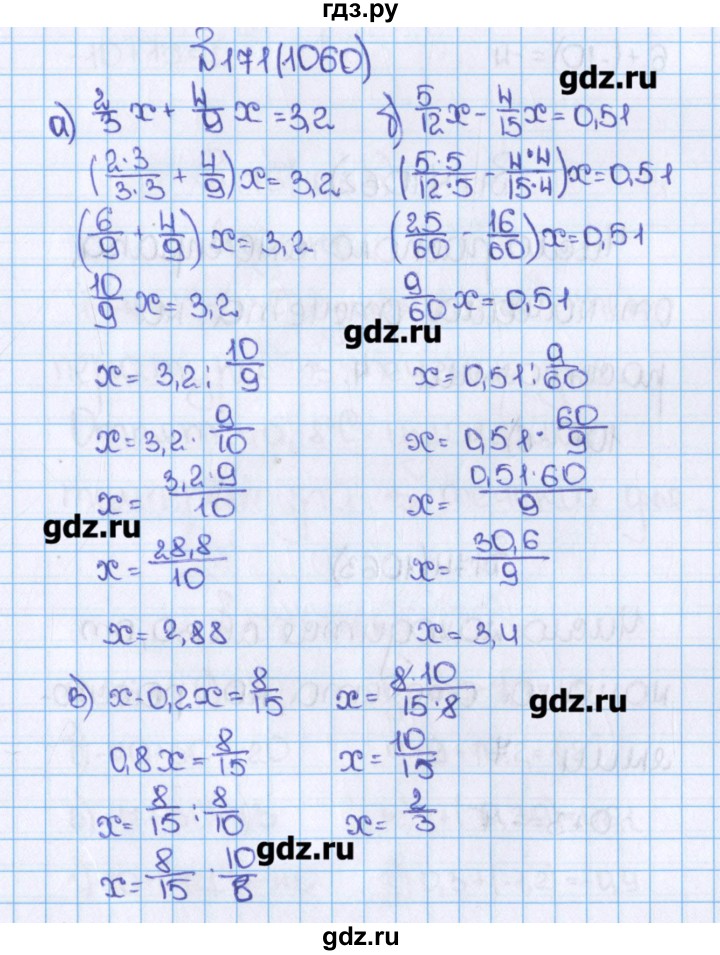 гдз.ру
№171(1060)
gdz.ru
а) 2/3 x + 4/9 x = 3,2
(2·3/3·3 + 4/9) x = 3,2
(6/9 + 4/9) x = 3,2
10/9 x = 3,2
x = 3,2 : 10/9
x = 3,2 · 9/10
x = 3,2·9/10
x = 28,8/10
x = 2,88
б) 5/12 x - 4/15 x = 0,51
(5·5/12·5 - 4·4/15·4) x = 0,51
(25/60 - 16/60) x = 0,51
9/60 x = 0,51
gdz.ru
x = 0,51 : 9/60
x = 0,51 · 60/9
x = 0,51·60/9
x = 30,6/9
x = 3,4
gdz.ru
в) x - 0,2x = 8/15
0,8x = 8/15
x = 8/15 : 8/10
x = 8/15 · 10/8
x = 8·10/15·8
x = 10/15
x = 2/3
gdz.ru
gdz.ru
gdz.ru